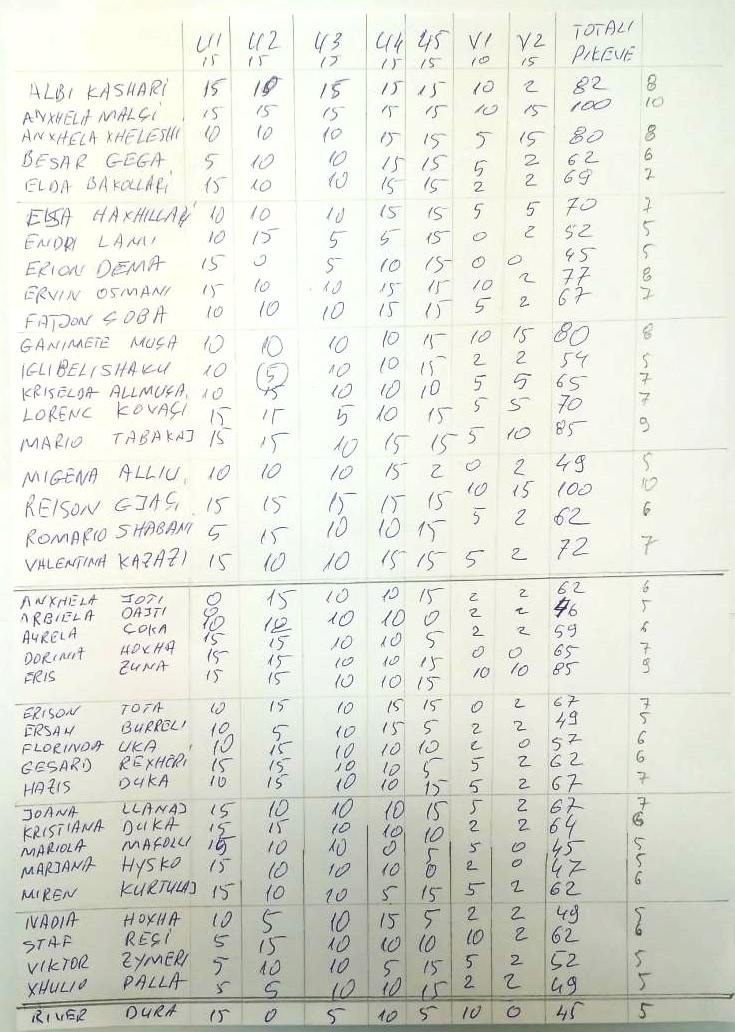 U1 U2 U3 U4 U5 V1 V2 TOTALI
15 15 15 15 15 10 15 PIKEVE
ALBI KASHARI 15 10 15 15 15 10 2 82 8
ANXHELA MALÇI 15 15 15 15 15 10 15 100 10
ANXHELA XHELESHI 10 10 10 15 15 5 15 80 8
BESAR GEGA 5 10 10 15 15 5 2 62 6
ELDA BAKOLLARI 15 10 10 15 15 2 2 69 7
ELSA HAXHILLARI 10 10 10 15 15 5 5 70 7
ENDRI LAMI 10 15 5 5 15 0 2 52 5
ERION DEMA 15 0 5 10 15 0 0 45 5
ERVIN OSMANI 15 10 10 15 15 10 2 77 8
FATJON ÇOBA 10 10 10 15 15 5 2 67 7
GANIMETE MUÇA 10 10 10 10 15 10 15 80 8
IGLI BELISHAKU 10 5 10 10 15 2 2 54 5
KRISELDA ALLMUÇA 10 15 10 10 10 5 5 65 7
LORENC KOVAÇI 15 15 5 10 15 5 5 70 7
MARIO TABAKAJ 15 15 10 15 15 5 10 85 9
MIGENA ALLIU 10 10 10 15 2 0 2 49 5
REISON GJAÇI 15 15 15 15 15 10 15 100 10
ROMARIO SHABANI 5 15 10 10 15 5 2 62 6
VALENTINA KAZAZI 15 10 10 15 15 5 2 72 7
ANXHELA JOTI 0 15 10 10 15 2 2 62 6
ARBIELA DAJTI 0 10 10 10 0 2 2 46 5
AURELA ÇOKA 15 15 10 10 5 2 2 59 6
DORINA HOXHA 15 15 10 10 15 0 0 65 7
ERIS ZUNA 15 15 10 10 15 10 10 85 9
ERISON TOTA 10 15 10 15 15 0 2 67 7
ERSAN BURRELI 10 5 10 15 5 2 2 49 5
FLORINDA UKA 10 15 10 10 10 2 0 57 6
GESARD REXHERI 15 15 10 10 5 5 2 62 6
HAZIS DUKA 10 15 10 10 15 5 2 67 7
JOANA LLANAJ 15 10 10 10 15 5 2 67 7
KRISTIANA DUKA 15 15 10 10 10 2 2 64 6
MARIOLA 15 10 10 0 5 5 0 45 5
MARJANA HYSKO 15 10 10 10 0 2 0 47 5
MIREN KURTULAJ 15 10 10 5 15 5 2 62 6
NADIA HOXHA 10 5 10 15 5 2 2 49 5
STAF REÇI 5 15 10 10 10 10 2 62 6
VIKTOR ZYMERI 5 10 10 5 15 5 2 52 5
XHULIO PALLA 5 5 10 10 15 2 2 49 5
RIVER DURA 15 0 5 10 5 10 0 45 5